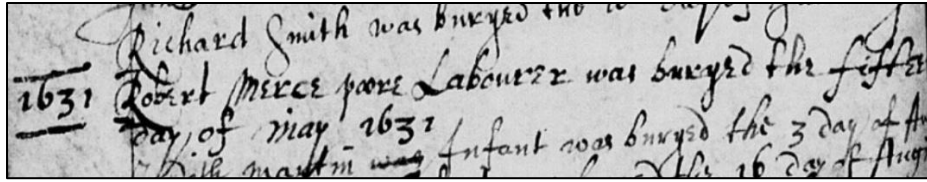 Richard Smith was buryed the
1631 Robert Merce poore Labourer was buryed the fifte
day of may 1631
martin was Infant was buryed the 3 day of
the 16 day of Augu